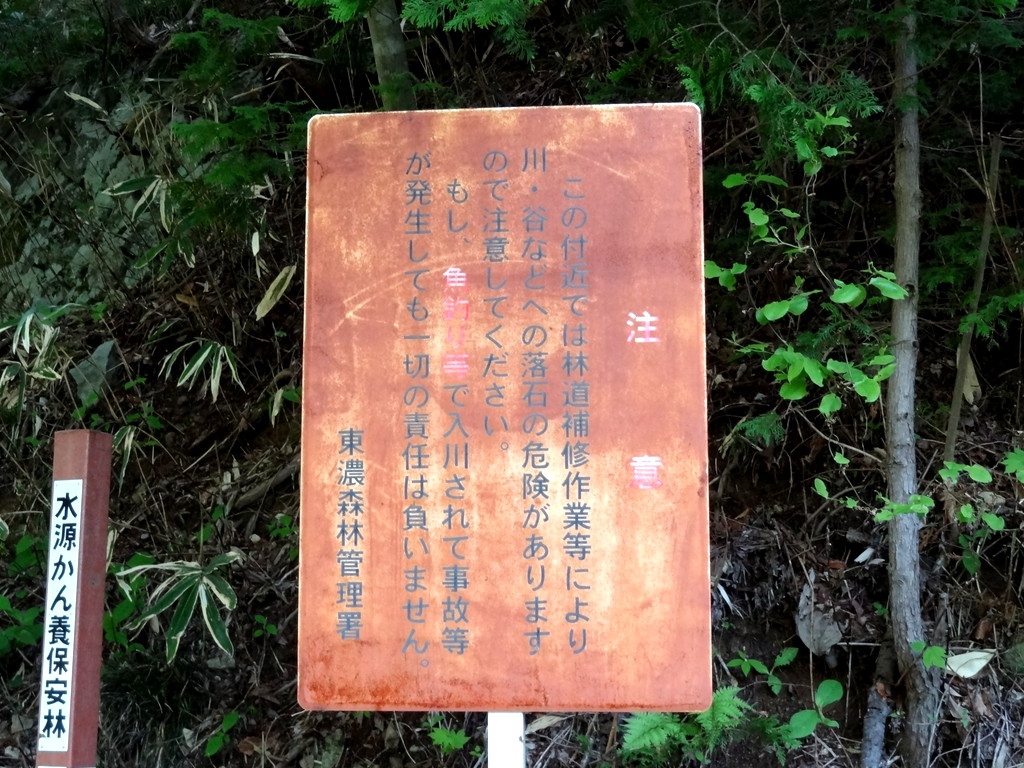 注意
この付近では林道補修作業等により
川・谷などへの落石の危険があります
ので注意してください。
もし、魚釣り等で入川されて事故等
が発生しても一切の責任は負いません。
東濃森林管理署
水源かん養保安林